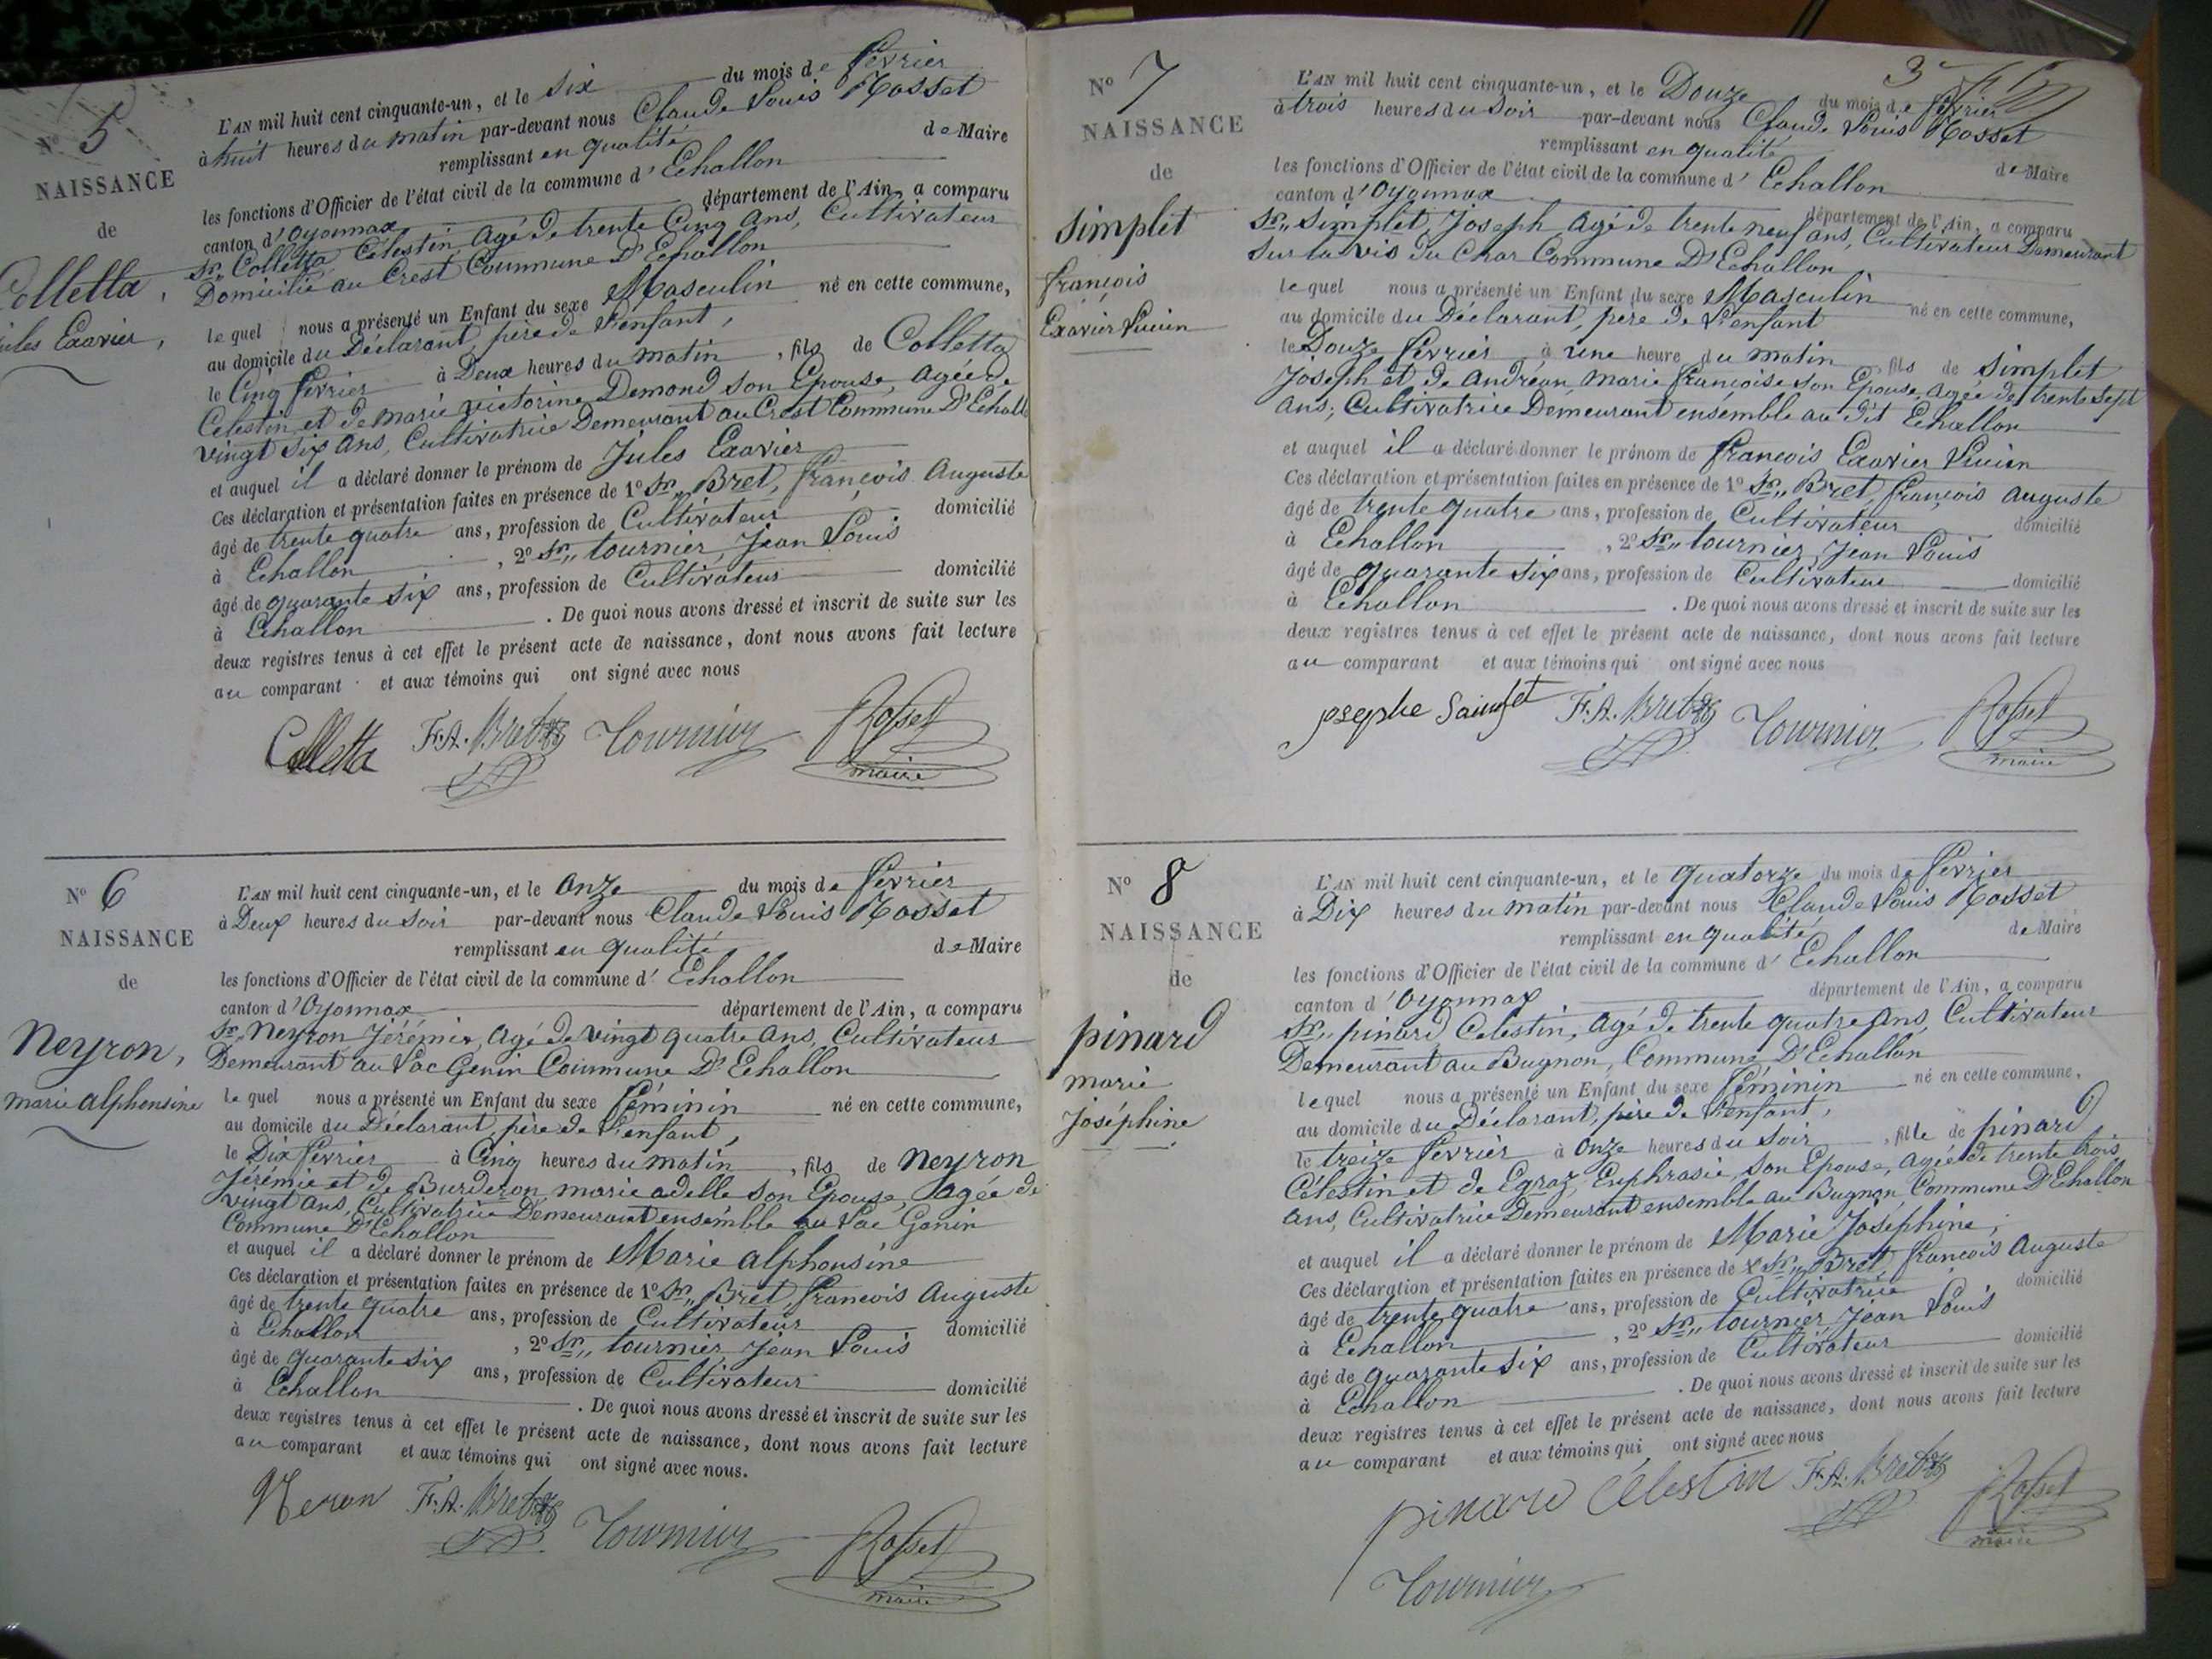 N° 5
NAISSANCE
de
Colletta,
Jules Exavier,
L'AN mil huit cent cinquante-un, et le six du mois de février
à huit heures du matin par-devant nous Claude Louis Rosset
remplissant en qualité de Maire
les fonctions d'Officier de l'état civil de la commune d'Echallon
canton d'Oyonnax département de l'Ain, a comparu
Sr,, Colletta, Célestin, agé de trente Cinq ans, Cultivateur
Domicilié au Crest Commune D'Echallon
lequel nous a présenté un Enfant du sexe Masculin né en cette commune,
au domicile du Déclarant, père de l'enfant,
le Cinq février à Deux heures du matin, fils de Colletta
Celestin et de marie victorine Demond son Epouse, agée de
vingt six ans, Cultivatrice Demeurant au Crest Commune D'Echallon
et auquel il a déclaré donner le prénom de Jules Exavier
Ces déclaration et présentation faites en présence de 1° Sr,, Bret, françois Auguste
âgé de trente quatre ans, profession de Cultivateur domicilié
à Echallon, 2° Sr,, tournier, Jean Louis
âgé de quarante six ans, profession de Cultivateur domicilié
à Echallon. De quoi nous avons dressé et inscrit de suite sur les
deux registres tenus à cet effet le présent acte de naissance, dont nous avons fait lecture
au comparant et aux témoins qui ont signé avec nous
Colletta F.A. Bret Tournier Rosset
maire
N° 6
NAISSANCE
de
Neyron,
marie alphonsine
L'AN mil huit cent cinquante-un, et le onze du mois de février
à Deux heures du soir par-devant nous Claude Louis Rosset
remplissant en qualité de Maire
les fonctions d'Officier de l'état civil de la commune d'Echallon
canton d'Oyonnax département de l'Ain, a comparu
Sr,, Neyron Jérémie, agé de vingt quatre ans, Cultivateur
Demeurant au Lac Genin Commune D'Echallon
lequel nous a présenté un Enfant du sexe féminin né en cette commune,
au domicile du Déclarant, père de l'enfant,
le Dix février à Cinq heures du matin, fils de Neyron
Jérémie et de Burderon, marie adelle son Epouse, agée de
vingt ans, Cultivatrice Demeurant ensemble au Lac Genin
Commune D'Echallon
et auquel il a déclaré donner le prénom de Marie alphonsine
Ces déclaration et présentation faites en présence de 1° Sr,, Bret, francois Auguste
âgé de trente quatre ans, profession de Cultivateur domicilié
à Echallon, 2° Sr,, tournier, Jean Louis
âgé de quarante six ans, profession de Cultivateur domicilié
à Echallon. De quoi nous avons dressé et inscrit de suite sur les
deux registres tenus à cet effet le présent acte de naissance, dont nous avons fait lecture
au comparant et aux témoins qui ont signé avec nous.
Neron F.A. Bret Tournier Rosset
maire
3e
N° 7
NAISSANCE
de
Simplet
françois
Exavier Lucien
L'AN mil huit cent cinquante-un, et le Douze du mois de février
à trois heures du soir par-devant nous Claude Louis Rosset
remplissant en qualité de Maire
les fonctions d'Officier de l'état civil de la commune d'Echallon
canton d'Oyonnax département de l'Ain, a comparu
Sr,, Simplet, Joseph agé de trente neuf ans, Cultivateur Demeurant
Sur la vis du Char Commune D'Echallon
lequel nous a présenté un Enfant du sexe Masculin né en cette commune,
au domicile du Déclarant, père de l'enfant
le Douze février à une heure du matin fils de Simplet
Joseph et de andréan, Marie françoise son Epouse, agée de trente sept
ans, Cultivatrice Demeurant ensemble au dit Echallon
et auquel il a déclaré donner le prénom de françois Exavier Lucien
Ces déclaration et présentation faites en présence de 1° Sr,, Bret, françois auguste
âgé de trente quatre ans, profession de Cultivateur domicilié
à Echallon, 2° Sr,, tournier, Jean Louis
âgé de quarante six ans, profession de Cultivateur domicilié
à Echallon. De quoi nous avons dressé et inscrit de suite sur les
deux registres tenus à cet effet le présent acte de naissance, dont nous avons fait lecture
au comparant et aux témoins qui ont signé avec nous
F.A. Bret Tournier Rosset
maire
N° 8
NAISSANCE
de
pinard
marie
Joséphine
L'AN mil huit cent cinquante-un, et le quatorze du mois de février
à Dix heures du matin par-devant nous Claude Louis Rosset
remplissant en qualité de Maire
les fonctions d'Officier de l'état civil de la commune d'Echallon
canton d'Oyonnax département de l'Ain, a comparu
Sr,, pinard Celestin, agé de trente quatre ans, Cultivateur
Demeurant au Bugnon, Commune D'Echallon
lequel nous a présenté un Enfant du sexe féminin né en cette commune,
au domicile du Déclarant, père de l'enfant,
le treize février à onze heures du soir, fille de pinard
Célestin et de Egraz, Euphrasie, son Epouse, agée de trente trois
ans, Cultivatrice Demeurant ensemble au Bugnon Commune D'Echallon
et auquel il a déclaré donner le prénom de Marie Joséphine,
Ces déclaration et présentation faites en présence de 1° Sr,, Bret, françois Auguste
âgé de trente quatre ans, profession de Cultivatrice domicilié
à Echallon, 2° Sr,, tournier, Jean Louis
âgé de quarante six ans, profession de Cultivateur domicilié
à Echallon. De quoi nous avons dressé et inscrit de suite sur les
deux registres tenus à cet effet le présent acte de naissance, dont nous avons fait lecture
au comparant et aux témoins qui ont signé avec nous
pinard Célestin F.A. Bret Rosset
maire
Tournier